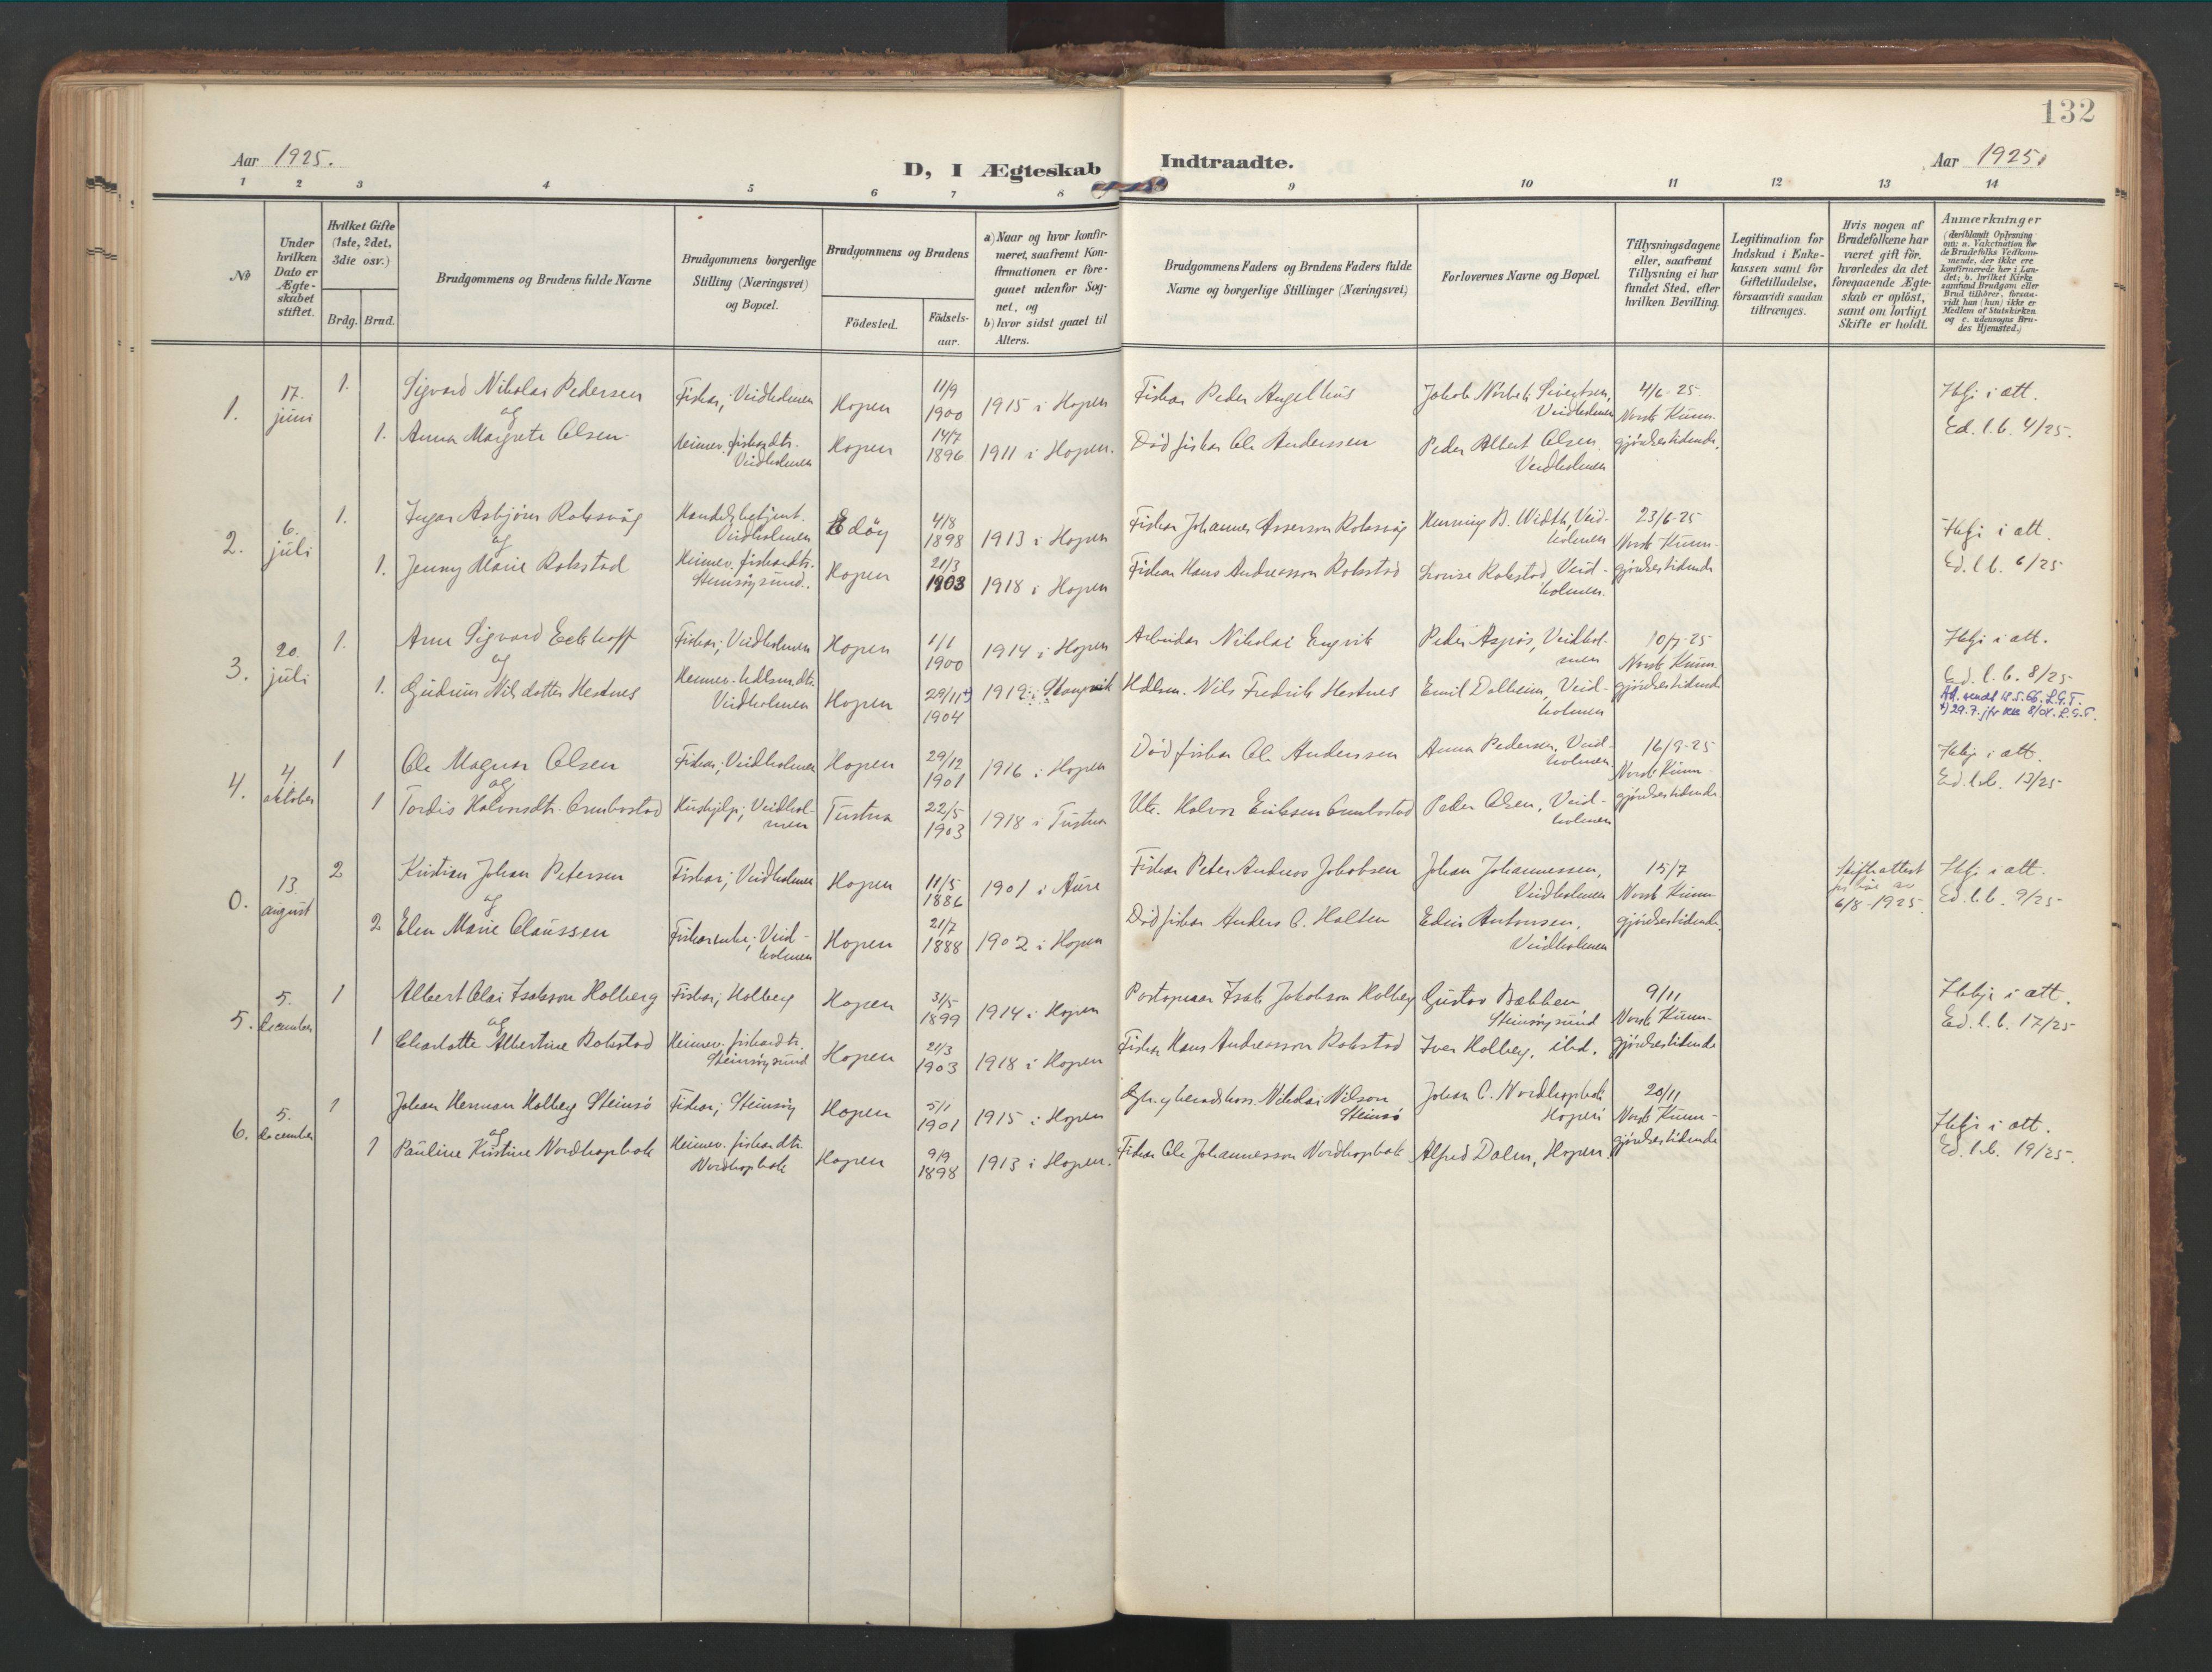 132
Aar 1925.
D, I Ægteskab Indtraadte.
Aar 1925.
1 2 3 4 5 6 7 8 9 10 11 12 13 14
No
Under hvilken Dato er Ægteskabet stiftet.
Hvilket Gifte (1ste, 2det, 3die osv.)
Brdg. Brud.
Brudgommens og Brudens fulde Navne
Brudgommens borgerlige Stilling (Næringsvei) og Bopæl.
Brudgommens og Brudens
Fødested.
Fødselsaar.
a) Naar og hvor konfirmeret, saafremt Konfirmationen er foregaaet udenfor Sognet, og
b) hvor sidst gaaet til Alters.
Brudgommens Faders og Brudens Faders fulde Navne og borgerlige Stillinger (Næringsvei)
Forlovernes Navne og Bopæl.
Tillysningsdagene eller, saafremt Tillysning ei har fundet Sted, efter hvilken Bevilling.
Legitimation for Indskud i Enkekassen samt for Giftetilladelse, forsaavidt saadan tiltrænges.
Hvis nogen af Brudefolkene har været gift før, hvorledes da det foregaaende Ægteskab er opløst, samt om lovligt Skifte er holdt.
Anmærkninger
(deriblandt Oplysning om: a. Vakcination for de Brudefolks Vedkommende, der ikke ere konfirmerede her i Landet; b. hvilket Kirkesamfund Brudgom eller Brud tilhører, forsaavidt han (hun) ikke er Medlem af Statskirken og c. udensogns Brudes Hjemsted.)
1. 17. juni 1. Sigvard Nikolai Pedersen Fiskar; Veidholmen Hopen 11/9 1900 1915 i Hopen Fiskar Peder Angelhus Jakob Norbeli Sivertsen, Veidholmen 4/6-25. Norsk Kunn- Hbfj i ætt.
og
1. Anna Margrete Olsen Heimev. fiskardtr. Veidholmen Hopen 14/7 1896 1911 i Hopen. Död fiskar Ole Anderssen Peder Albert Olsen Veidholmen gjöridsestidende. Ed. l.b. 4/25.
2. 6. juli 1. Ingar Asbjörn Roksvåg Handelsbetjent. Veidholmen Edöy 4/8 1898 1913 i Hopen Fiskar Johannes Asserson Roksvåg Henning B. Width, Veidholmen 23/6-25 Norsk Kunn- Hbfj i ætt.
og
1. Jenny Marie Rokstad Heimev. fiskardtr. Steinsöysund. Hopen 21/3 1903 1918 i Hopen Fiskar Hans Andreasson Rokstad Lovise Rokstad, Veidholmen. gjöridsestidende Ed. l.b. 6/25
3. 20. juli 1. Arne Sigvard Eckhoff Fiskar; Veidholmen Hopen 1/1 1900 1914 i Hopen Arbeidar Nikolai Engvik Peder Aspös, Veidholmen 10/7-25 Norsk Kunn- Hbfj i ætt.
og
1. Gudrun Nilsdotter Hestnes Heimev. hdlsmdtr. Veidholmen Hopen 29/11 1904 1919 i Stangvik Hdlsm. Nils Fredrik Hestnes Emil Dalheim, Veidholmen gjöridsestidende Ed. l.b. 8/25
Att. sendt 18.5.66. L.G.T.
+) 29.7. jfr 8/04. L.G.T.
4. 4. oktober 1 Ole Magnar Olsen Fiskar; Veidholmen Hopen 29/12 1901 1916 i Hopen Död fiskar Ole Anderssen Anna Pedersen, Veidholmen 16/9-25 Norsk Kunn- Hbfj i ætt.
og
1 Tordis Halvorsdtr. Ombostad Hushjelp; Veidholmen Tustna 22/5 1903 1918 i Tustna Halvor Eriksen Ombostad Peder Olsen, Veidholmen gjöridsestidende. Ed. l.b. 13/25
0. 13. august 2 Kristian Johan Petersen Fiskar; Veidholmen Hopen 11/5 1886 1901 i Aure Fiskar Peter Andreas Jakobsen Johan Johannessen, Veidholmen 15/7 Norsk Kunn- Skifteattest 6/8-1925 Hbfj i ætt.
og
2 Elen Marie Claussen Fiskarenke; Veidholmen Hopen 21/7 1888 1902 i Hopen Död fiskar Anders C. Halten Edin Antonsen, Veidholmen gjöridsestidende. Ed. l.b. 9/25
5. 5. december 1 Albert Olai Isakson Holberg Fiskar; Holberg Hopen 31/5 1899 1914 i Hopen Postopnar Isak Jakobson Holberg Gustav Bækken Steinsöysund 9/11 Norsk Kunn- Hbfj i ætt.
og
1 Charlotte Albertine Rokstad Heimev. fiskardtr. Steinsöysund Hopen 21/3 1903 1918 i Hopen Fiskar Hans Andreasson Rokstad Iver Holberg, ibid. gjöridsestidende Ed. l.b. 17/25
6. 5. december 1 Johan Herman Holberg Steinsö Fiskar; Steinsöy Hopen 5/1 1901 1915 i Hopen Nikolai Nilson Steinsö Johan C. Nordhopbak Hopen 20/11 Norsk Kunn- Hbfj i ætt.
og
1 Pauline Kristine Nordhopbak Heimev. fiskardtr. Nordhopbak Hopen 9/9 1898 1913 i Hopen. Fiskar Ole Johannesson Nordhopbak Alfred Dalen, Hopen. gjöridsestidende Ed. l.b. 19/25.